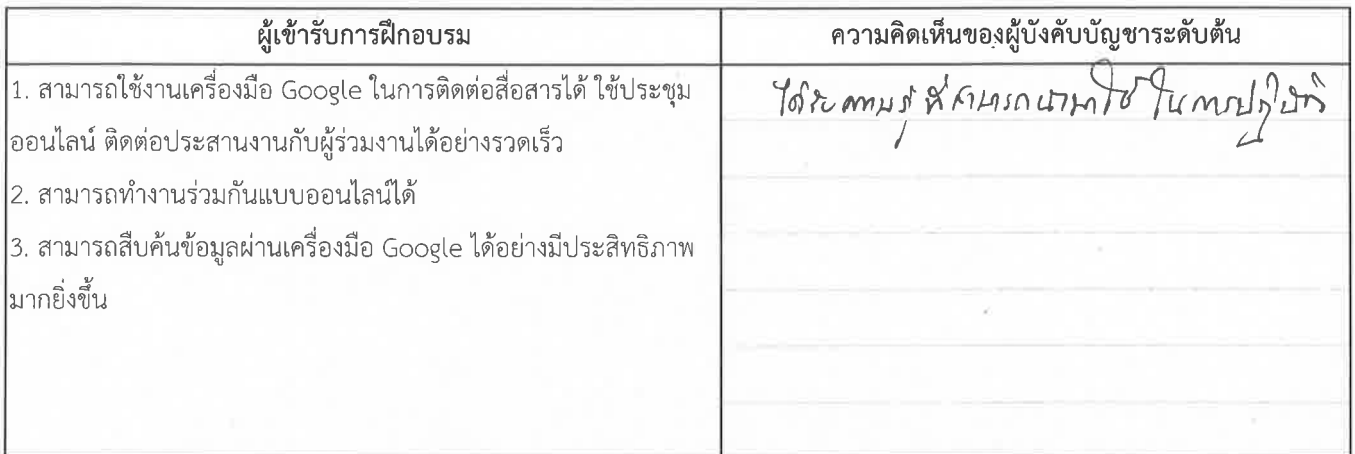 ผู้เข้ารับการฝึกอบรม
ความคิดเห็นของผู้บังคับบัญชาระดับต้น
1. สามารถใช้งานเครื่องมือ Google ในการติดต่อสื่อสารได้ ใช้ประชุม
ออนไลน์ ติดต่อประสานงานกับผู้ร่วมงานได้อย่างรวดเร็ว
2. สามารถทำงานร่วมกันแบบออนไลน์ได้
3. สามารถสืบค้นข้อมูลผ่านเครื่องมือ Google ได้อย่างมีประสิทธิภาพ
มากยิ่งขึ้น
ความรู้ ที่สามารถนำมาใช้ ในการปฏิบัติ